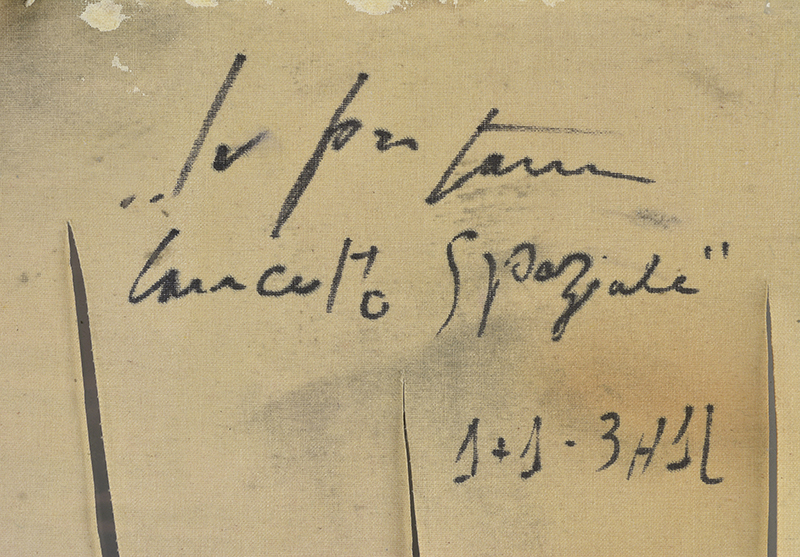 l. fontana
"Concetto Spaziale"
1+1-3H1L